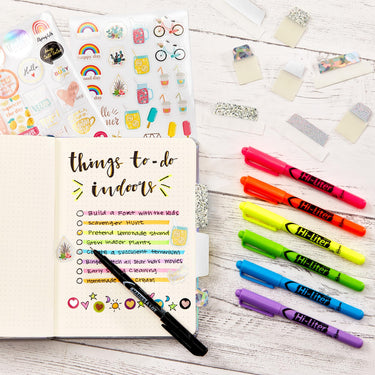 happy day
hello
things to-do
indoors
Build a Fort with the kids
Scavenger Hunt
Pretend lemonade stand
Grow indoor plants
Create a succulent terrarium
Early Spring Cleaning
Homemade Ice Cream
Hi-Liter
Hi-Liter
Hi-Liter
Hi-Liter
Hi-Liter
Hi-Liter